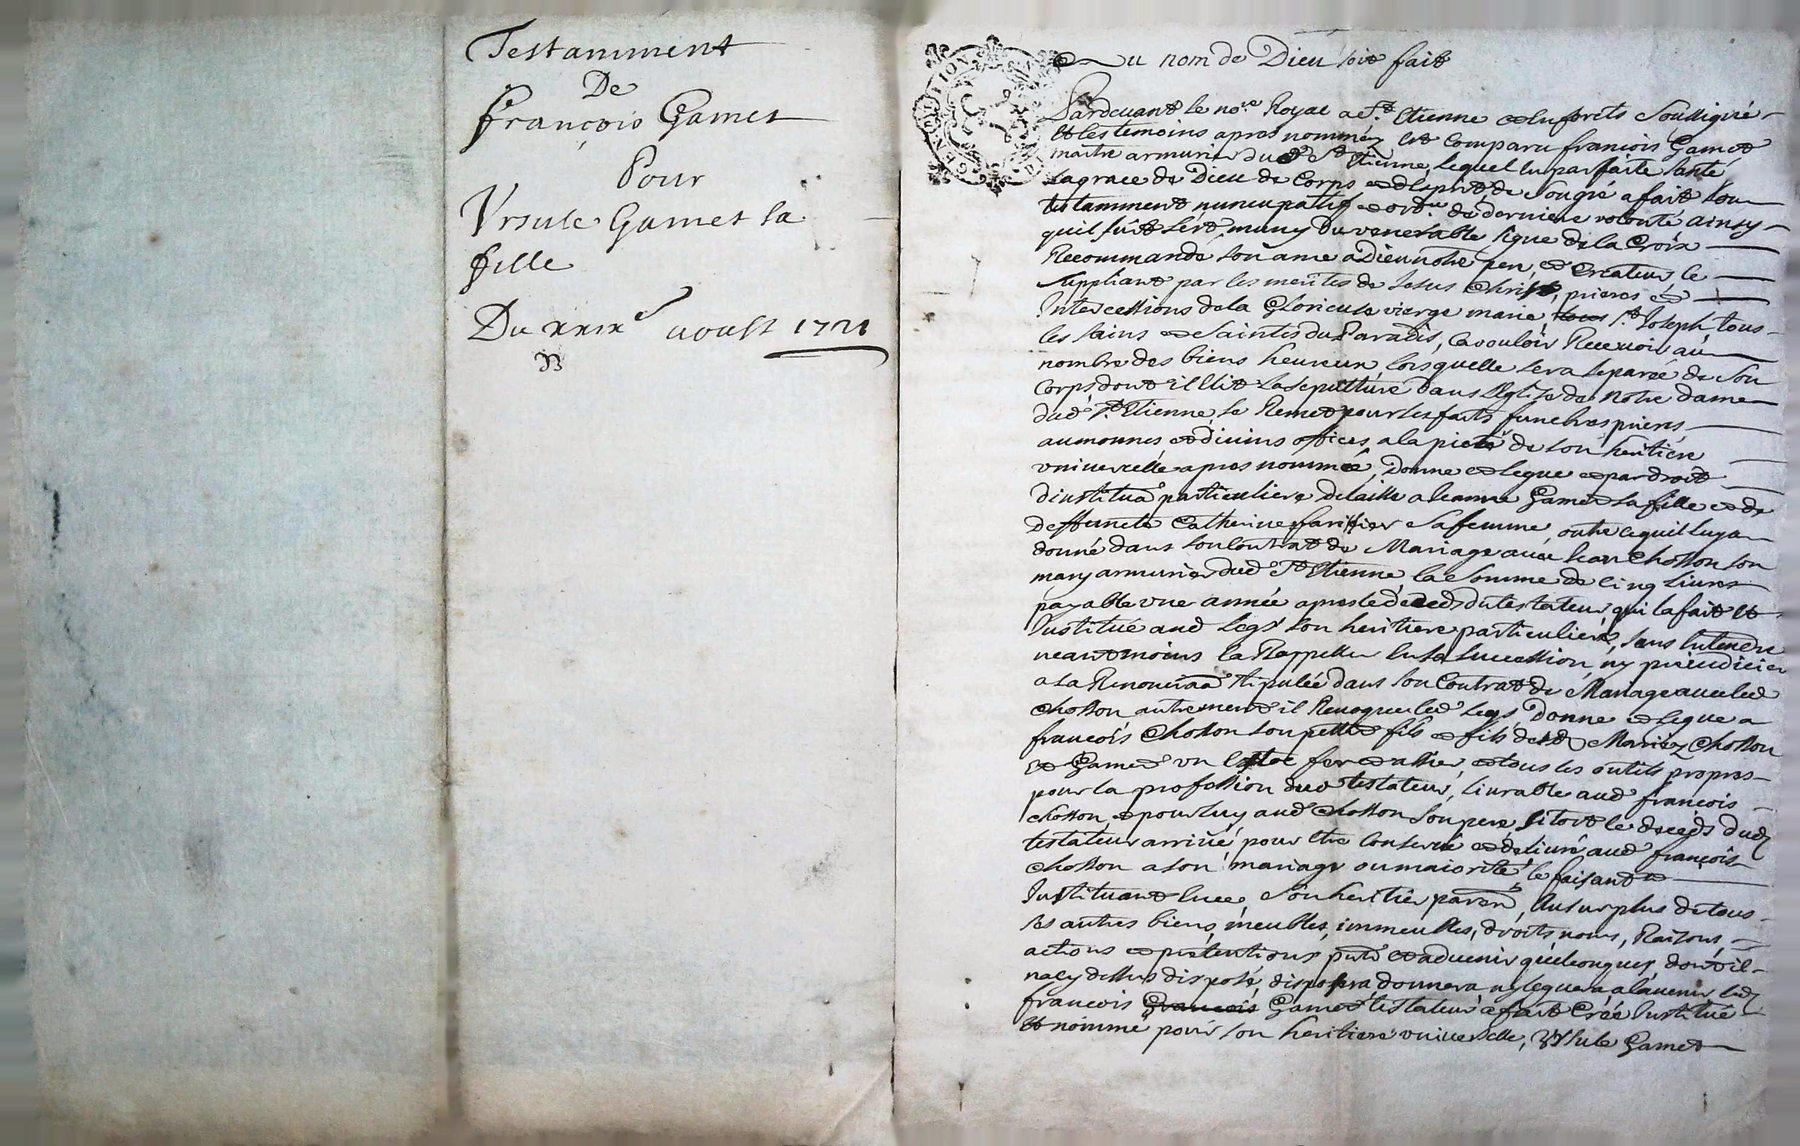 Testamment
De
françois Gamet
Pour
Ursule Gamet sa
fille
Du xxixe aoust 1721
Au nom de Dieu soit fait
Pardevant le nore Royal a St. Etienne en forests Soussigné
et les temoins apres nommez, est comparu françois Gamet
maitre armurier dud St Etienne, lequel en parfaite santé
la grace de Dieu de Corps et d'Esprit de son gré a fait son
testamment nuncupatif et ord.re de derniere volonté ainsy
quil suit s'est muny du venerable signe de la Croix
Recommandé son ame a Dieu notre pere et Createur le
suppliant par les merites de Jesus Christ, prieres et
Intercessions de la Glorieuse vierge marie St Joseph tous
les saints et Saintes du Paradis, la vouloir Recevoir au
nombre des biens heureux, lors quelle sera separée de son
Corps dont il Elit la sepulture dans l'Eglize de Notre dame
dud St Etienne, se Remet pour les faits funebres prieres
aumonnes et divins offices a la pieté de son heritiere
universelle apres nommée, Donne et legue et par droit
d'institua.on particuliere delaisse a Jeanne Gamet sa fille et de
deffuncte Catherine sa femme, outre ce quil luy a
donné dans son Contrat de Mariage avec Jean Chosson son
mary armurier dud St Etienne, la Somme de Cinq Livres
payable une année apres le deceds du testateur qui la fait et
Institue aud legs son heritiere particuliere, sans Entendre
neantmoins la Rappeller en sa succession, ny prejudicier
a la Renoncia.on stipulée dans son Contrat de Mariage avec led
Chosson autrement il Revoque led legs, Donne et legue a
françois Chosson son petit fils et fils desd Mariez Chosson
et Gamet un Estoc fer et assier, et tous les outils propres
pour la profession dud testateur, livrable aud françois
Chosson, et pour luy aud Chosson son pere sitost le deceds dud
testateur arrivé pour Etre Conservé et delivré aud françois
Chosson a son mariage ou majorité, le faisant et
Instituant en ce, Son heritier par.er, Au surplus de tous
ses autres biens, meubles, immeubles, droits, noms, Raisons,
actions et pretentions pnts et advenir quelconques, dont il
na cy dessus disposé, disposera donnera ny leguera a lavenir led
francois Gamet testateur a fait Créé Institué
et nommé pour son heritiere universelle, Ursule Gamet